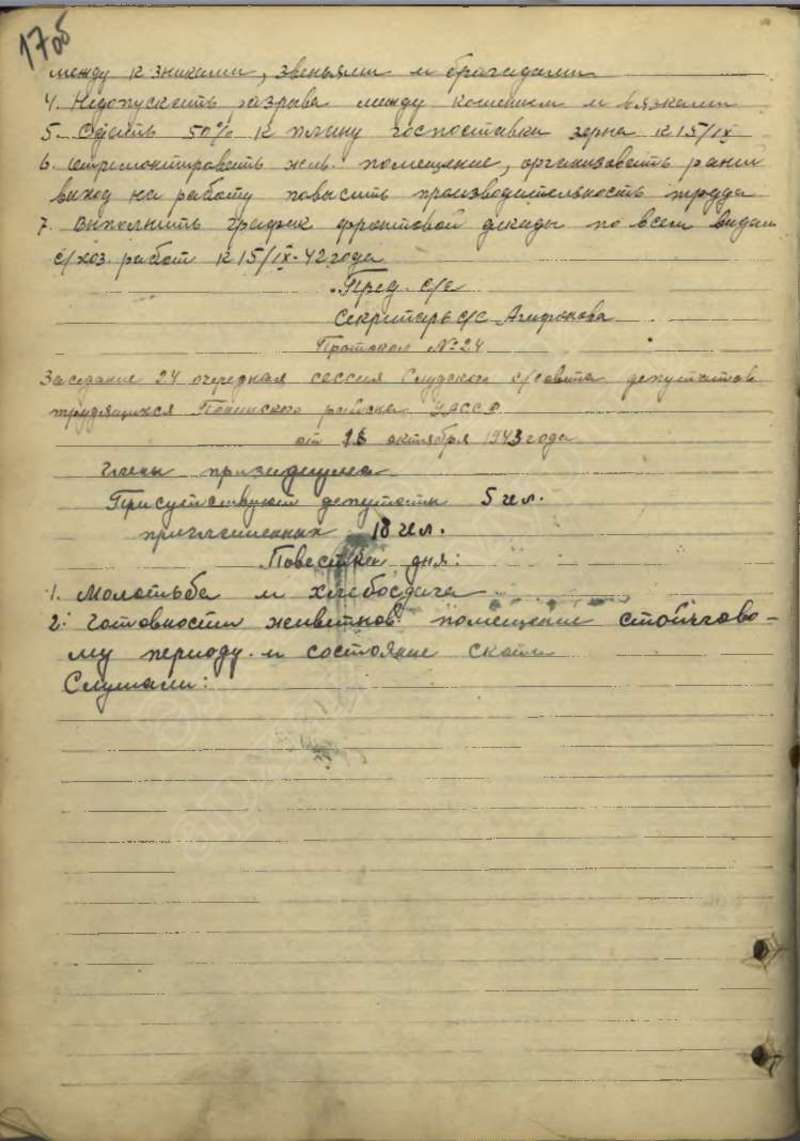 17об
между к зниками, звеньями и бригадами
4. Недопускать разрыва между кошением и вязками
5. Сдать 50% к плану госпоставки зерна к 15/IX
6. отремонтировать жив. помещение, организовать ранн
выход на работу повысить производительность труда
7. Выполнить график фронтовой декады по всем видам
с/хоз. работ к 15/IX-42 года
Пред. с/с
Секретарь с/с Агафонова
Протокол №24
Заседание 24 очередная сессия Слудского с/совета депутатов
трудящихся района УАССР
от 16 октября 1943 года
Члены призидиума
Присутствуют депутаты 5 чел.
приглашенных 18 чел.
Повестка дня:
1. Молотьба и хлебосдача
2. Готовности животнов. помещение стойлгово-
му периоду и состояние скота
Слушали: